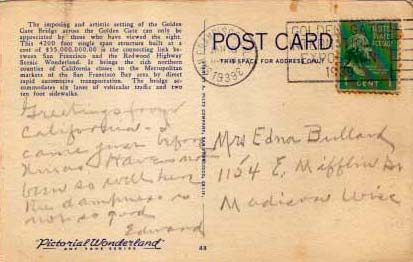 The imposing and artistic setting of the Golden
Gate Bridge across the Golden Gate can only
be appreciated by those who have viewed the sight.
This 4200 foot single span structure built at a
cost of $35,000,000.00 is the connecting link be-
tween San Francisco and the Redwood Highway
Scenic Wonderland. It brings the rich northern
counties of California closer to the Metropolitan
markets of the San Francisco Bay area by direct
rapid automotive transportation. The bridge ac-
commodates six lanes of vehicular traffic and two
ten foot sidewalks.
Greetings from
California - I
came just before
Xmas. Have not
been so well here
the dampness is
not so good
Edward
Pictorial Wonderland
ART TONE SERIES
43
POST CARD
THIS SPACE FOR ADDRESS ONLY
GOLDEN
1 CENT 1
Mrs Edna Bullard
1154 E. Mifflin St
Madison Wisc